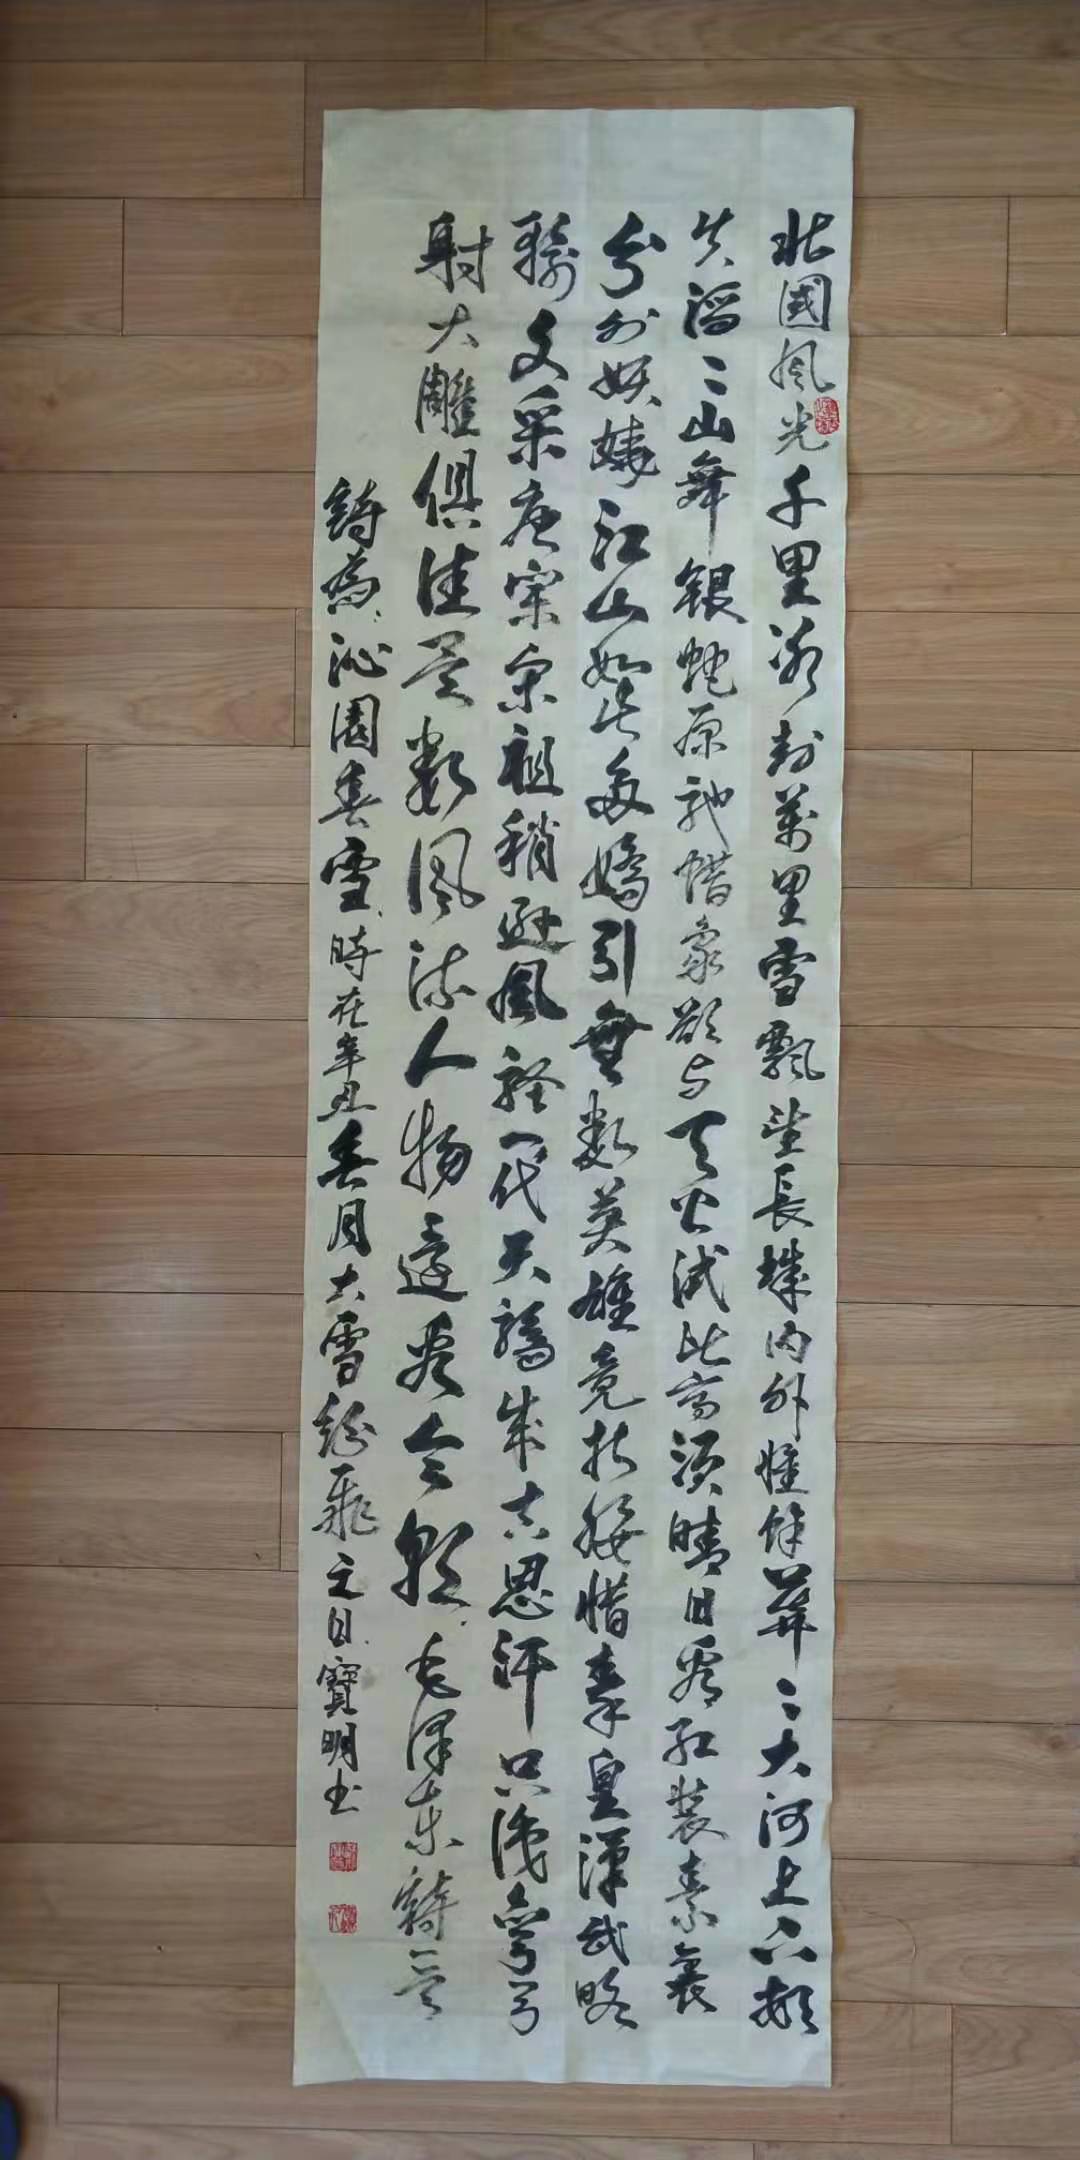 北國風光千里冰封萬里雪飄望長城内外惟餘莽〻大河上下頓
失滔〻山舞銀蛇原馳蜡象欲与天公試比高須晴日看紅裝素裹
分外妖嬈江山如此多嬌引無數英雄竞折腰惜秦皇漢武略
輸文采唐宗宋祖稍遜風騷一代天驕成吉思汗只識彎弓
射大雕俱往矣數風流人物還看今朝毛泽东詩一首
詩為沁園春雪時在辛丑春月大雪紛飛之日寶明书